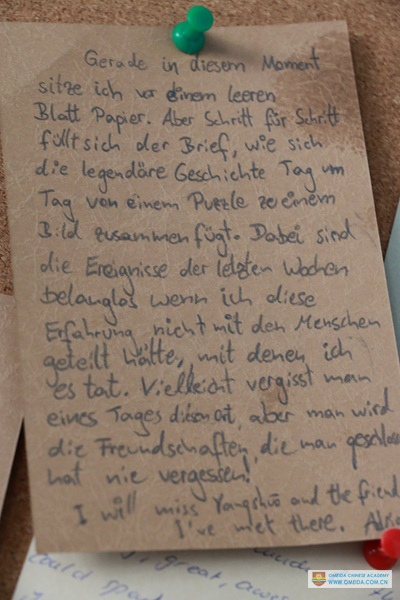 Gerade in diesem Moment
sitze ich vor einem leeren
Blatt Papier. Aber Schritt für Schritt
füllt sich der Brief, wie sich
die legendäre Geschichte Tag um
Tag von einem Puzzle zu einem
Bild zusammenfügt. Dabei sind
die Ereignisse der letzten Wochen
belanglos wenn ich diese
Erfahrung nicht mit den Menschen
geteilt hätte, mit denen ich
es tat. Vielleicht vergisst man
eines Tages diesen Ort, aber man wird
die Freundschaften, die man geschlosse
hat nie vergessen!
I will miss Yangshuo and the friend
I've met there.
great,
OMEIDA CHINESE ACADEMY
WWW.OMEIDA.COM.CN